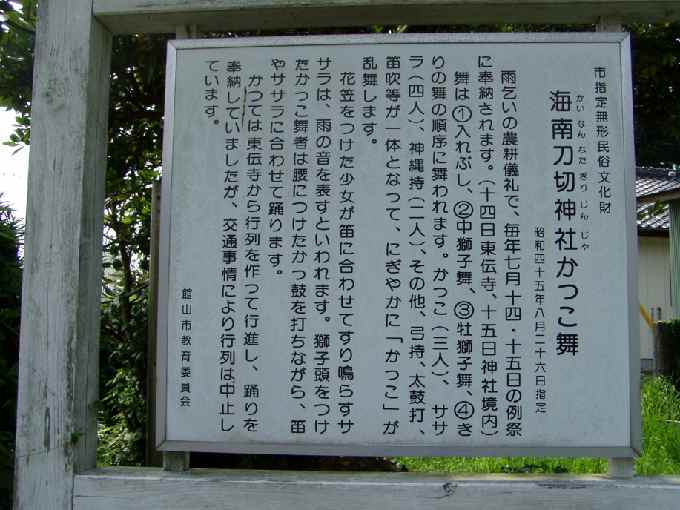 市指定無形民俗文化財
海南刀切神社かっこ舞
かいなんなたぎりじんじゃ
昭和四十五年八月二十六日指定
雨乞いの農耕儀礼で、毎年七月十四・十五日の例祭
に奉納されます。(十四日東伝寺、十五日神社境内)
舞は①入れぶし、②中獅子舞、③牡獅子舞、④き
りの舞の順序に舞われます。かっこ(三人)、ササ
ラ(四人)、神縄持(二人)、その他、弓持、太鼓打、
笛吹等が一体となって、にぎやかに「かっこ」が
乱舞します。
花笠をつけた少女が笛に合わせてすり鳴らすサ
サラは、雨の音を表すといわれます。獅子頭をつけ
たかっこ舞者は腰につけたかっ鼓を打ちながら、笛
やササラに合わせて踊ります。
かつては東伝寺から行列を作って行進し、踊りを
奉納していましたが、交通事情により行列は中止し
ています。
館山市教育委員会